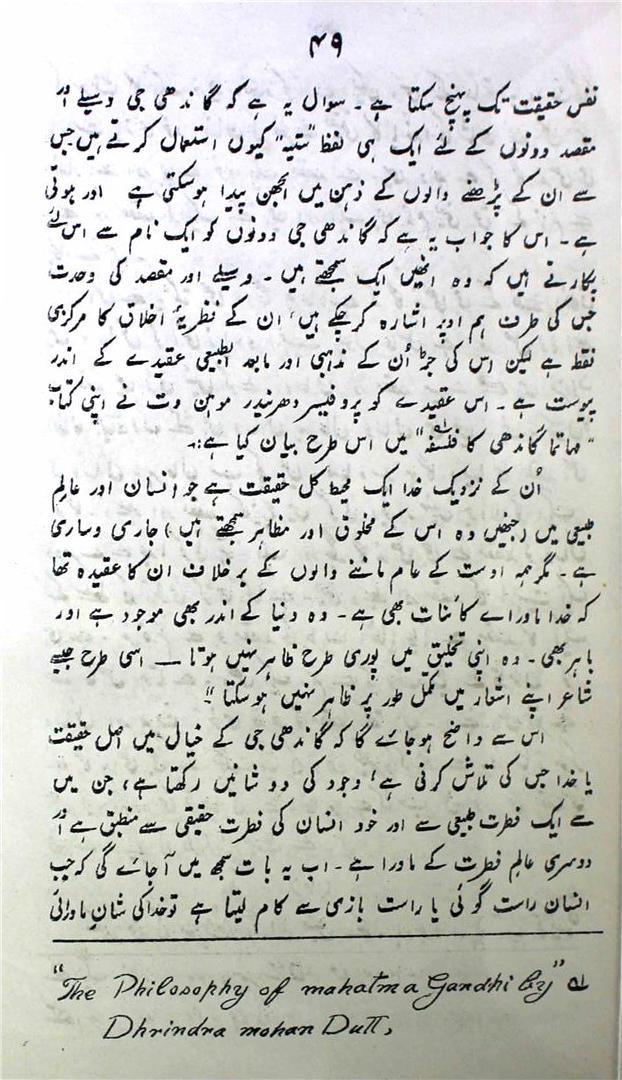 ۴۹
نفس حقیقت تک پہنچ سکتا ہے۔ سوال یہ ہے کہ گاندھی جی وسیلے اور
مقصد دونوں کے لئے ایک ہی لفظ "ستیہ" کیوں استعمال کرتے ہیں جس
سے ان کے پڑھنے والوں کے ذہن میں الجھن پیدا ہوسکتی ہے اور ہوتی
ہے۔ اس کا جواب یہ ہے کہ گاندھی جی دونوں کو ایک نام سے اس لئے
پکارتے ہیں کہ وہ انھیں ایک سمجھتے ہیں۔ وسیلے اور مقصد کی وحدت
جس کی طرف ہم اوپر اشارہ کرچکے ہیں، ان کے نظریۂ اخلاق کا مرکزی
نقطہ ہے لیکن اس کی جڑ اُن کے مذہبی اور مابعد الطبیعی عقیدے کے اندر
پیوست ہے۔ اس عقیدے کو پروفیسر دھریندر موہن دت نے اپنی کتاب
"مہاتما گاندھی کا فلسفہ" میں اس طرح بیان کیا ہے:۔
اُن کے نزدیک خدا ایک محیط کل حقیقت ہے جو انسان اور عالمِ
طبیعی میں (جنھیں وہ اس کے مخلوق اور مظاہر سمجھتے ہیں) جاری وساری
ہے۔ مگر ہمہ اوست کے عام ماننے والوں کے برخلاف ان کا عقیدہ تھا
کہ خدا ماورائے کائنات بھی ہے۔ وہ دنیا کے اندر بھی موجود ہے اور
باہر بھی۔ وہ اپنی تخلیق میں پوری طرح ظاہر نہیں ہوتا — اسی طرح جیسے
شاعر اپنے اشعار میں مکمل طور پر ظاہر نہیں ہوسکتا"۔
اس سے واضح ہوجائے گا کہ گاندھی جی کے خیال میں اصل حقیقت
یا خدا جس کی تلاش کرنی ہے، وجود کی دو شانیں رکھتا ہے، جن میں
سے ایک فطرت طبیعی سے اور خود انسان کی فطرت حقیقی سے منطبق ہے اور
دوسری عالمِ فطرت کے ماورا ہے۔ اب یہ بات سمجھ میں آجائے گی کہ جب
انسان راست گوئی یا راست بازی سے کام لیتا ہے تو خدا کی شانِ ماورائی
"The Philosophy of mahatma Gandhi by" ؎۱
Dhrindra mohan Dutt,